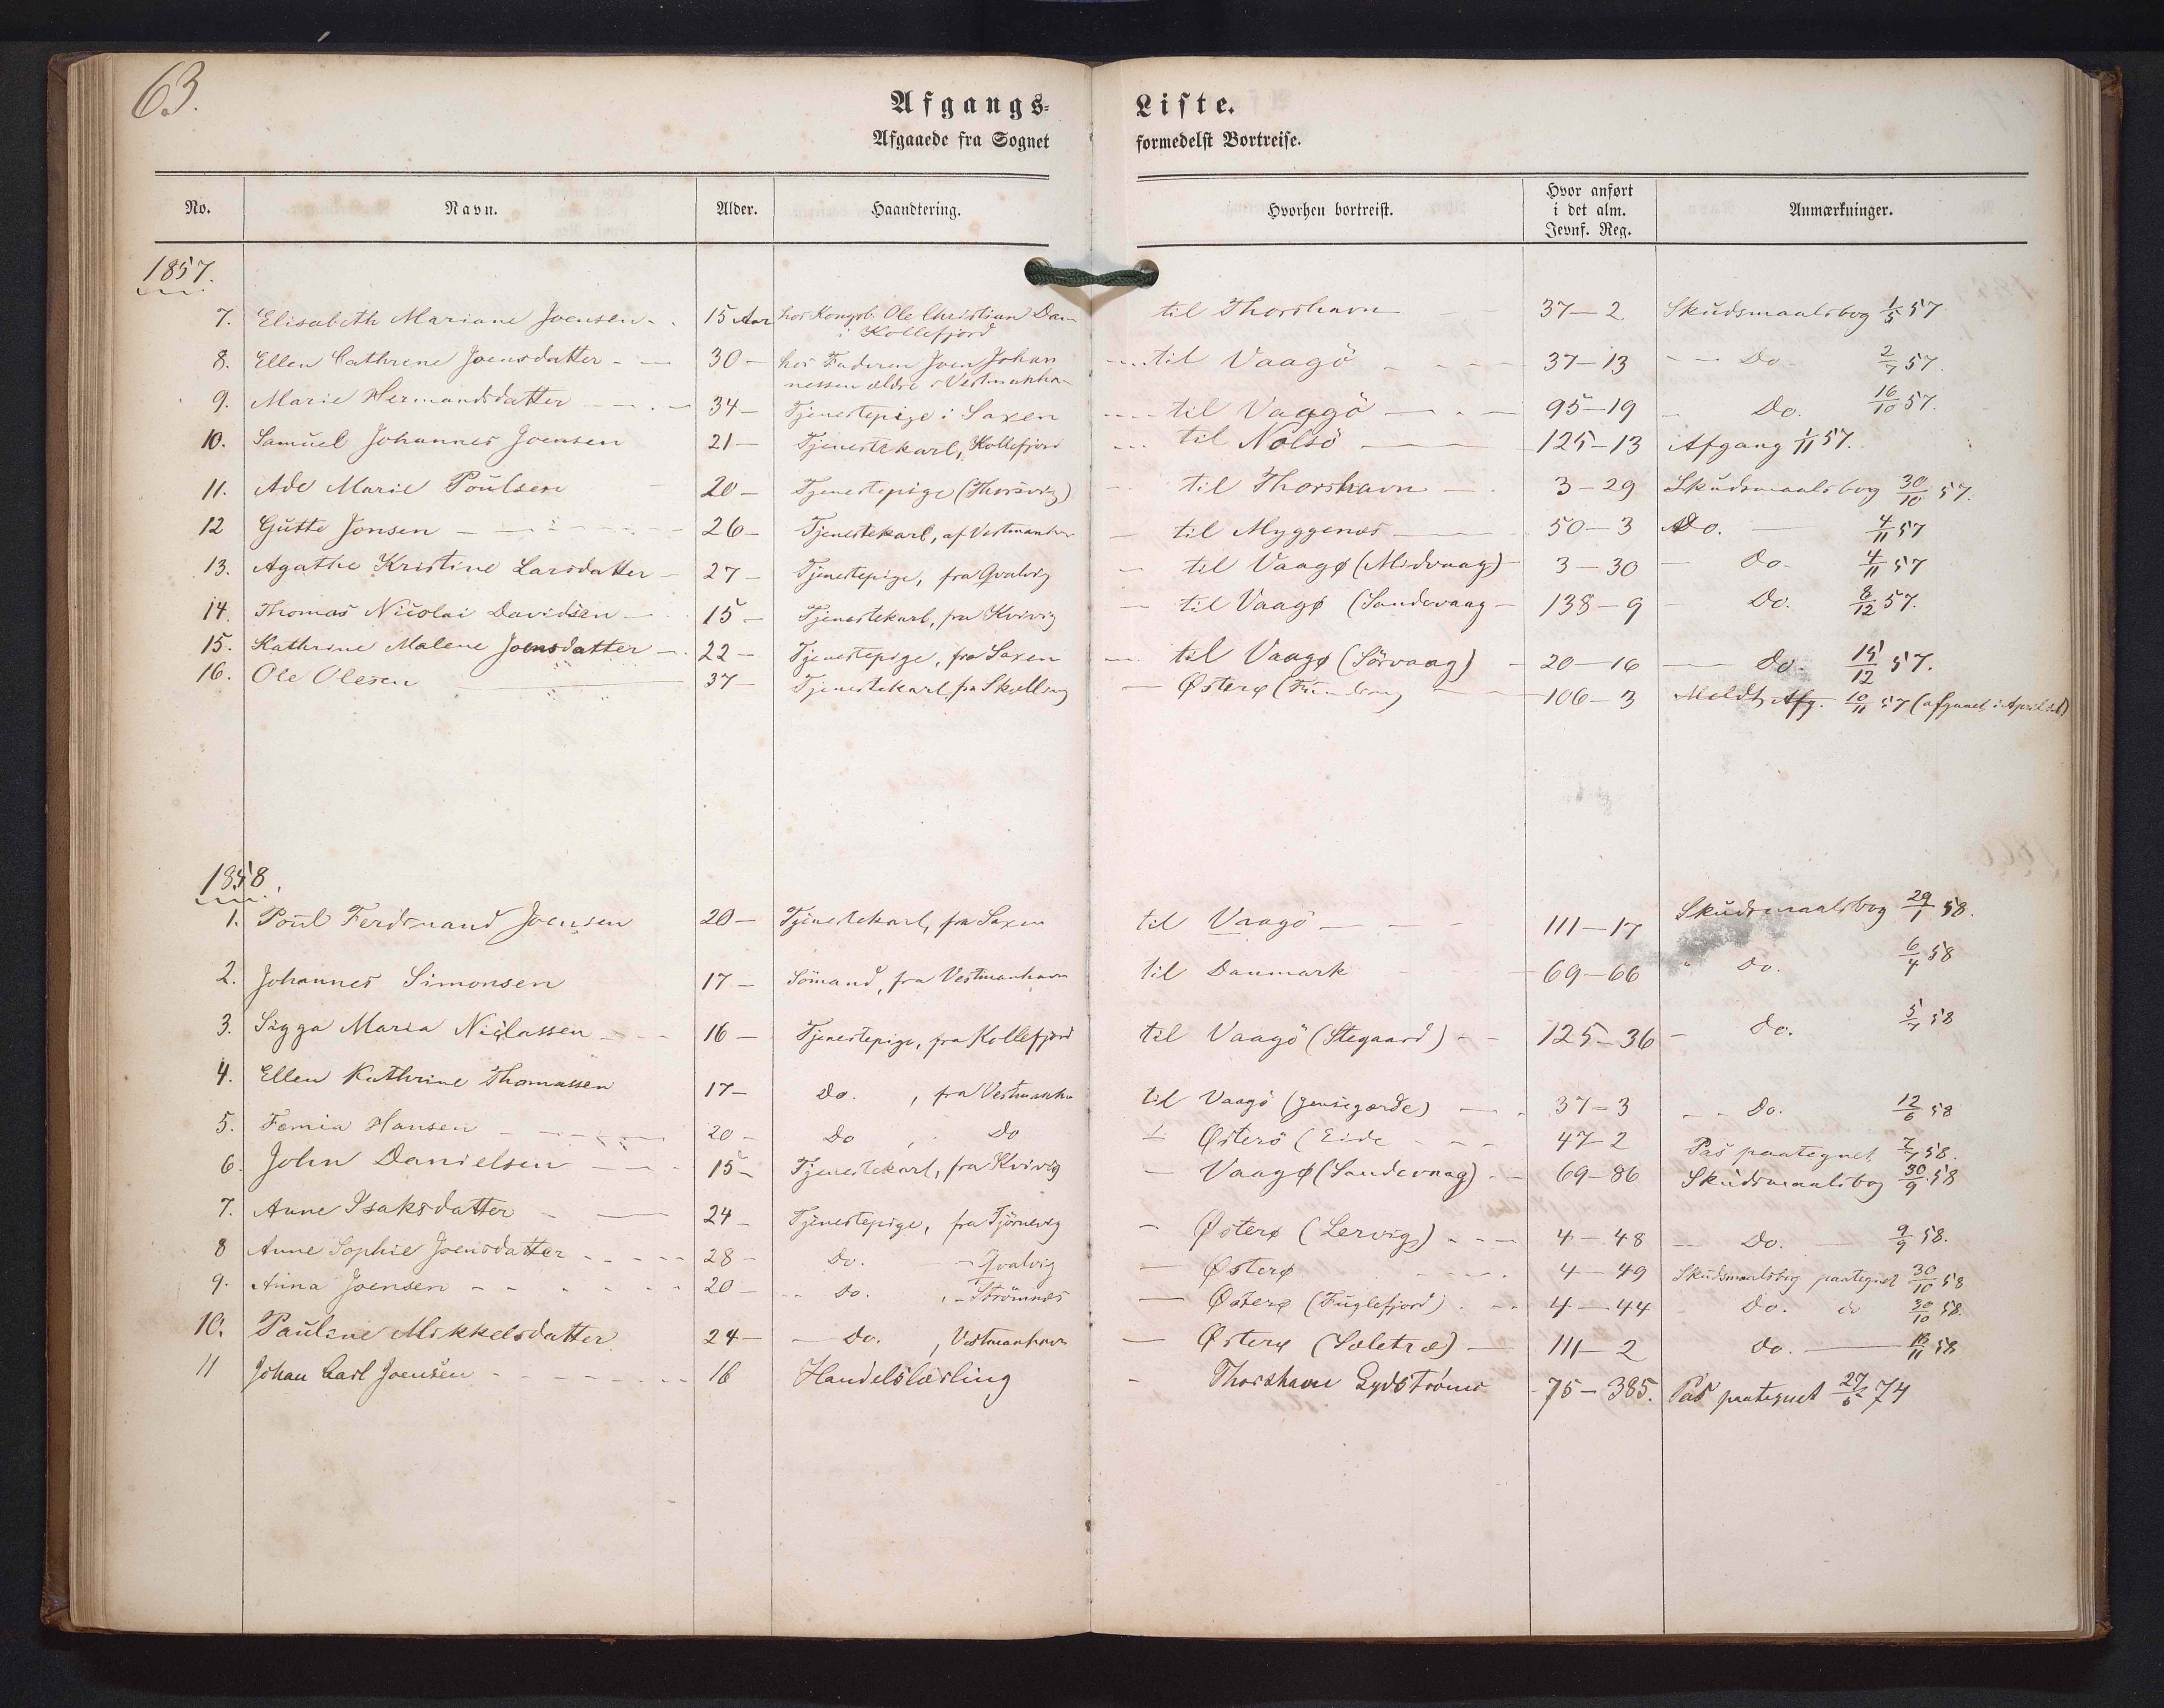 63.
Afgangs- Liste.
Afgaaede fra Sognet formedelst Bortreise.
No. Navn. Alder. Haandtering. Hvorhen bortreist. Hvor anført i det alm. Jevnf. Reg. Anmærkninger.
1857.
7. Elisabeth Mariane Joensen 15 Aar hos Kongsb. Ole Christian Dam i Kollefjord til Thorshavn 37-2 Skudsmaalsbog 1/5 57
8. Ellen Cathrine Joensdatter 30 hos Faderen Joen Johannessen ældre i til Vaagö 37-13 Do. 2/7 57.
9. Marie Hermandsdatter 34 Tjenestepige i Saxen til Vaagö 95-19 Do. 16/10 57.
10. Samuel Johannes Joensen 21 Tjenestekarl, Kollefjord til Nolsö 125-13 Afgang 1/11 57.
11. Ade Marie Poulsen 20 Tjenestepige (Thorsvig) til Thorshavn 3-29 Skudsmaalsbog 30/10 57.
12 Gutte Jonsen 26 Tjenestekarl, af til Myggenæs 50-3 Do. 4/11 57
13. Agathe Kristine Larsdatter 27 Tjenestepige, fra Qvalvig til Vaagø (Midvaag) 3-30 Do. 4/11 57
14. Thomas Nicolai Davidsen 15 Tjenestekarl, fra Kvivig til Vaagø (Sandevaag 138-9 Do. 8/12 57.
15. Kathrine Malene Joensdatter 22 Tjenestepige, fra Saxen til Vaagø (Sörvaag) 20-16 Do. 15/12 57.
16. Ole Olesen 37 Tjenestekarl fra Østerø 106-3 Meldt Afg. 10/11 57 (afgaaet i April
1858.
1. Poul Ferdinand Joensen 20 Tjenestekarl, fra Saxen til Vaagö 111-17 Skudsmaalsbog 29/1 58.
2. Johannes Simonsen 17 Sömand, fra Vestmanhavn til Danmark 69-66 Do. 6/4 58
3. Sigga Maria Niclassen 16 Tjenestepige, fra Kollefjord til Vaagö (Stegaard) 125-36 Do. 5/7 58
4. Ellen Kathrine Thomassen 17 Do., fra til Vaagö 37-3 Do. 12/6 58
5. Femia Hansen 20 Do, Do Østerö (Eide 47-2 Pas paategnet 2/7 58.
6. John Danielsen 15 Tjenestekarl, fra Kvivig Vaagø (Sandevaag) 69-86 Skudsmaalsbog 30/9 58
7. Anne Isaksdatter 24 Tjenestepige, fra Tjörnevig Østerø (Lervig) 4-48 Do. 9/9 58.
8 Anne Sophie Joensdatter 28 Do. Qvalvig Østerø 4-49 Skudsmaalsbog paategnet 30/10 58
9. Anna Joensen 20 Do. Strömnæs Østerø (Fuglefjord) 4-44 Do. do 30/10 58.
10. Pauline Mikkelsdatter 24 Do., Vestmanhavn Østerø (Saletræ) 111-2 Do. 58
11 Johan Carl Joensen 16 Handelslærling Thorshavn 75-385. Pas paategnet 27/5 74